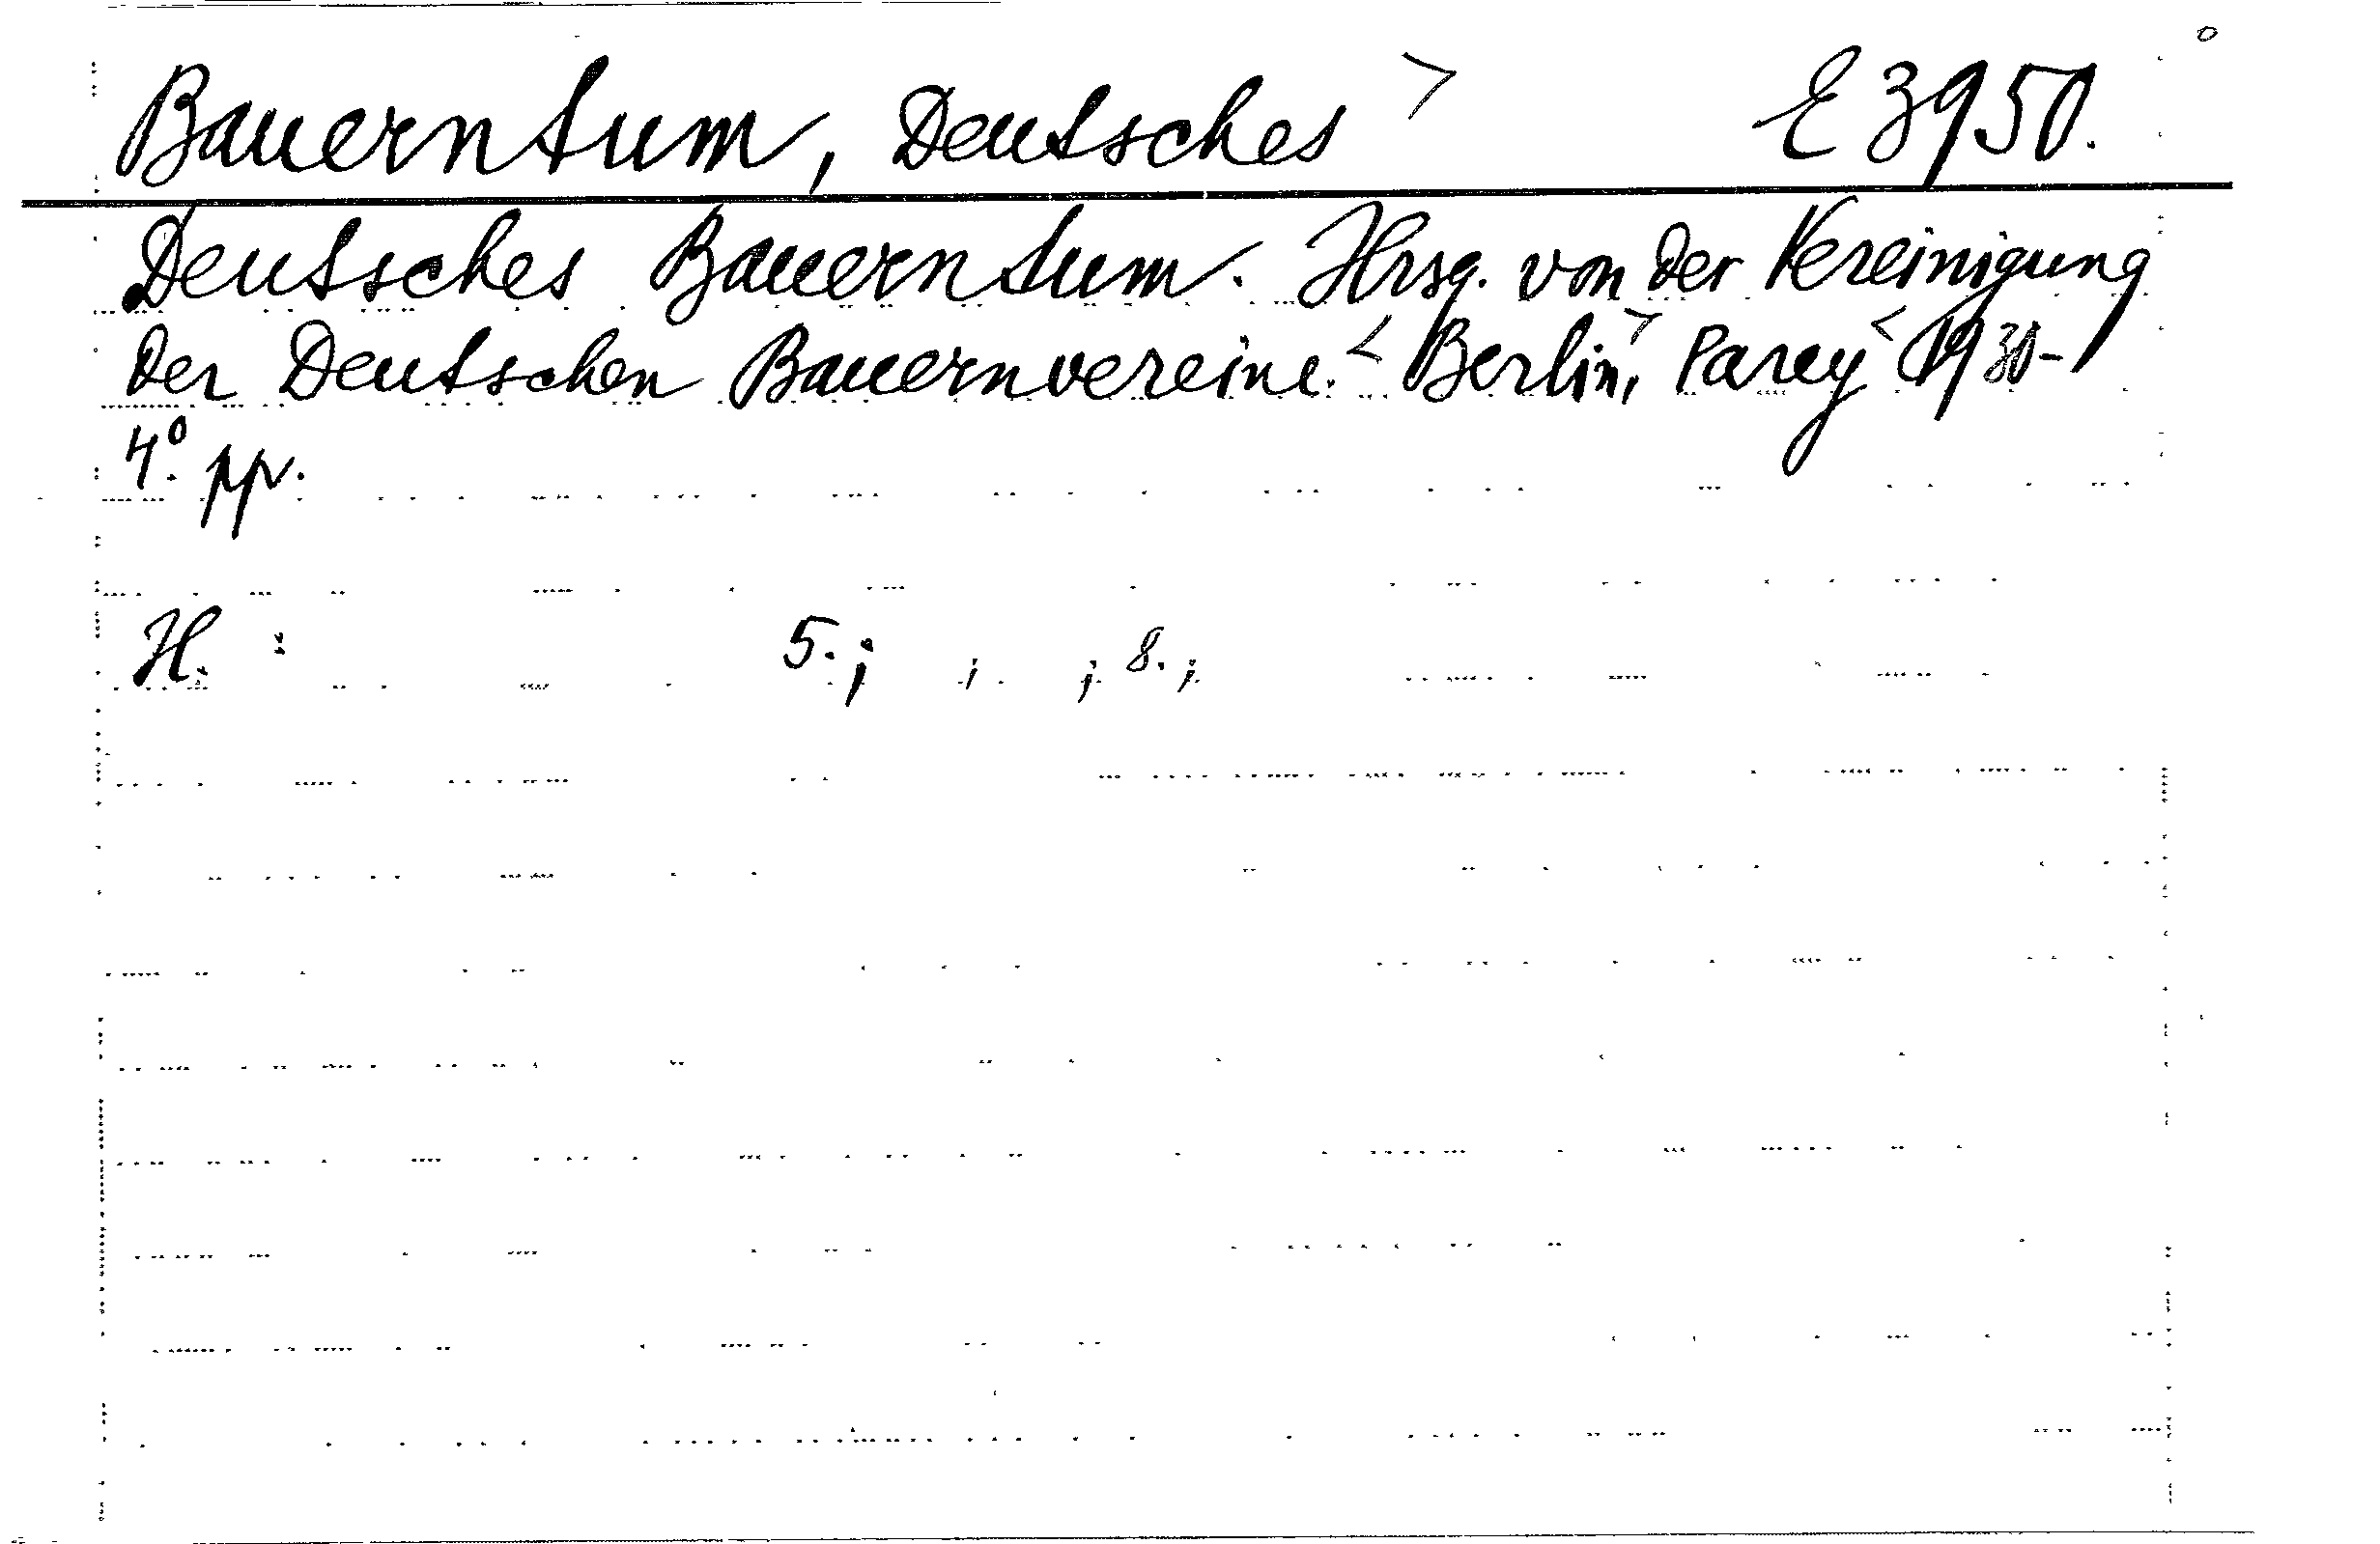 Bauerntum, Deutsches > E 3950.
Deutsches Bauerntum. Hrsg. von der Vereinigung
der Deutschen Bauernvereine. < Berlin, > Parey < 1930-
4° pp.
H. : 5. ; ; ; 8. ;